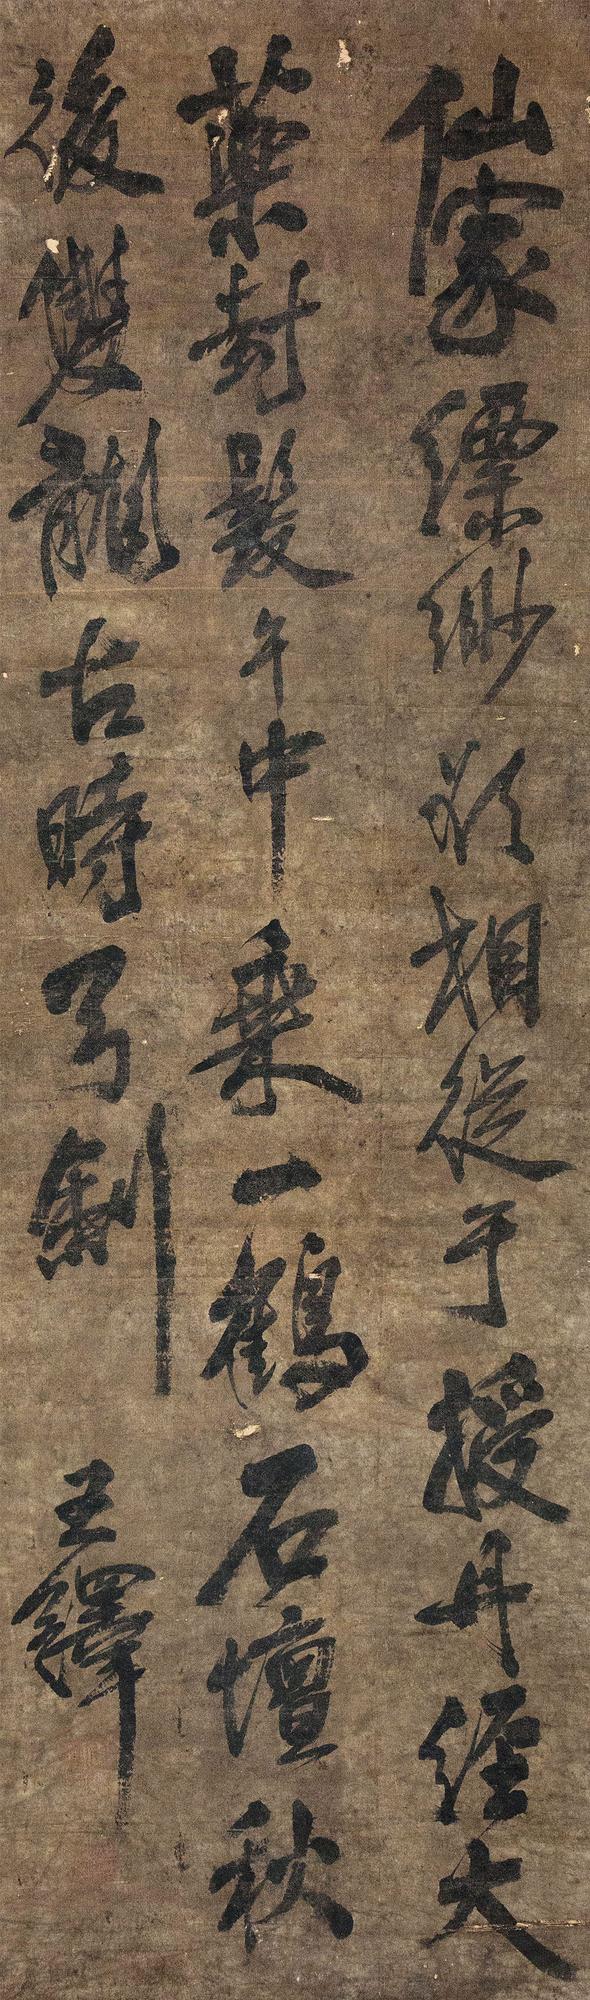 仙家縹緲欲相從于授丹經大
藥封髮午中乘一鶴石壇秋
後雙龍古時弓劍 王鐸